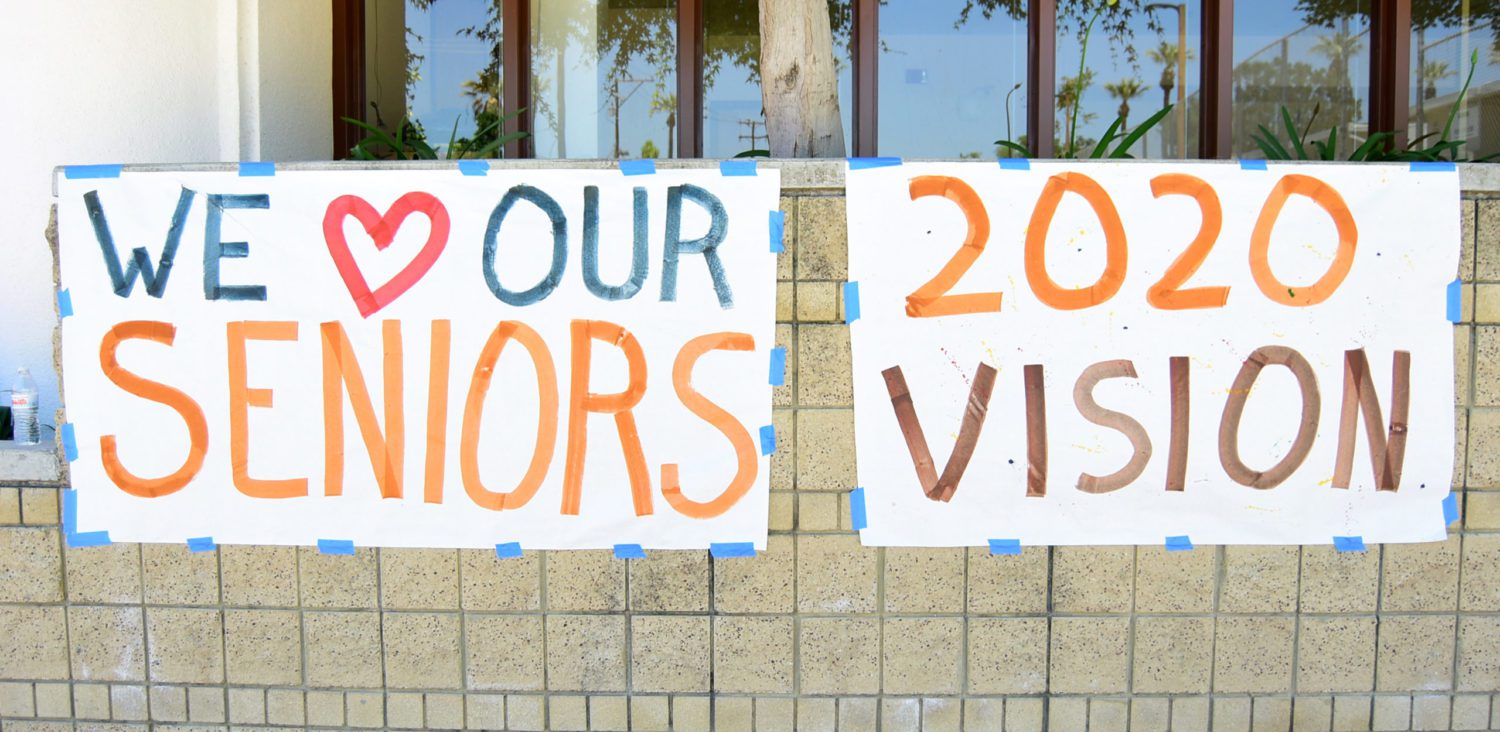 WE ❤ OUR
SENIORS
2020
VISION